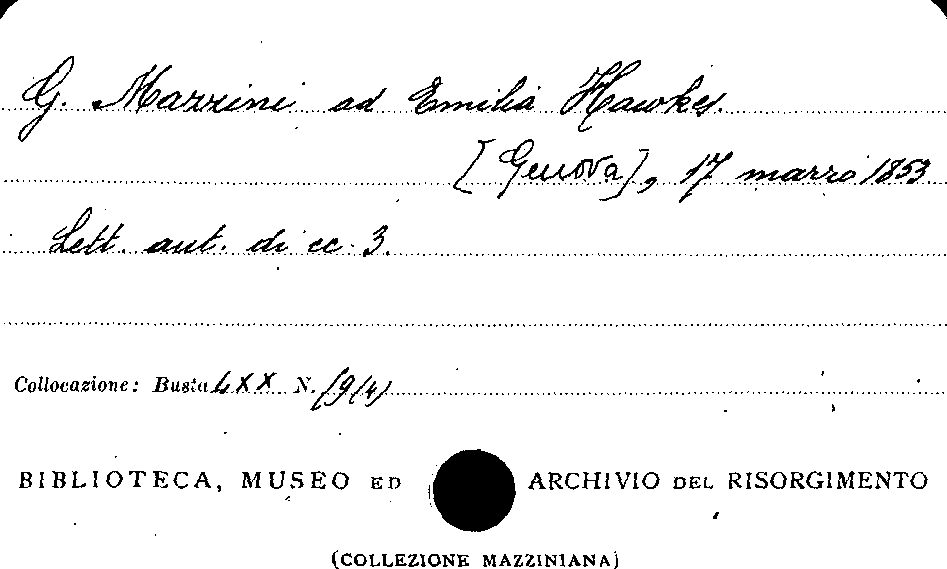 G. Mazzini ad Emilia Hawkes.
[Genova], 17 marzo 1853
Lett. aut. di cc. 3.
Collocazione: Busta LXX N. (9/4)
BIBLIOTECA, MUSEO ED ARCHIVIO DEL RISORGIMENTO
(COLLEZIONE MAZZINIANA)